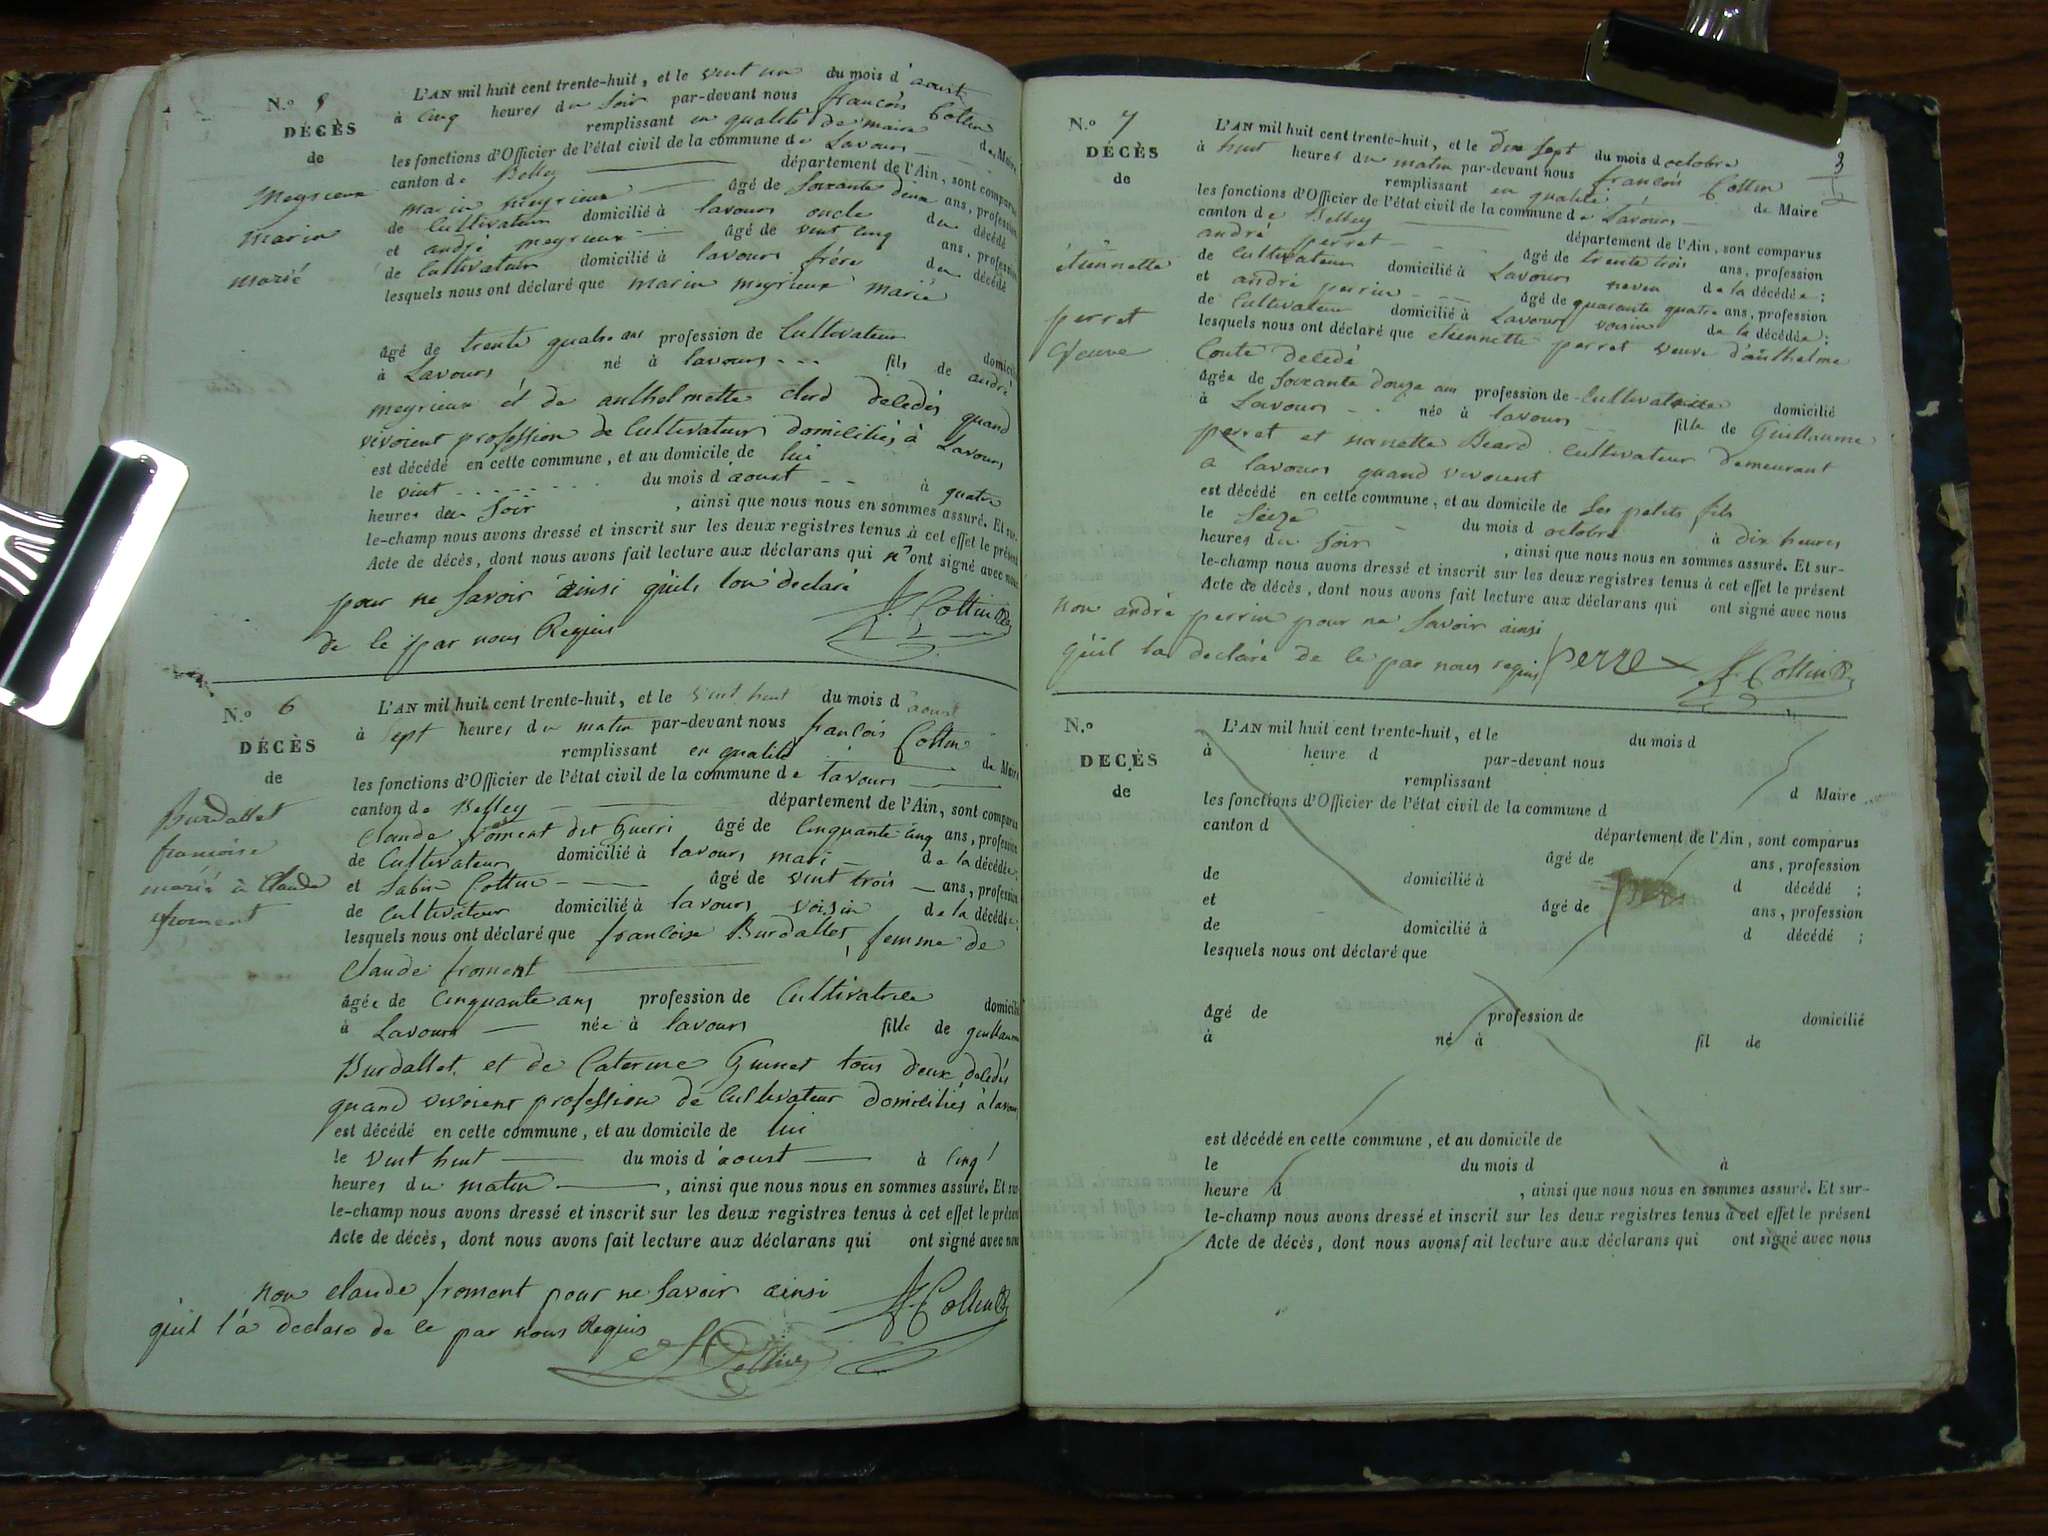 N.o 5
DÉCÈS
de
Meyrieux
marin
marié
L'AN mil huit cent trente-huit, et le vint un du mois d'aoust
à cinq heures du soir par-devant nous françois Cottin
remplissant en qualité de maire de Maire
les fonctions d'Officier de l'état civil de la commune de Lavours
canton de Belley département de l'Ain, sont comparus
marin meyrieux âgé de soixante deux ans, profession
de Cultivateur domicilié à lavours oncle du décédé
et andré meyrieux âgé de vint cinq ans, profession
de Cultivateur domicilié à lavours frére du décédé
lesquels nous ont déclaré que marin meyrieux marié
âgé de trente quatre ans profession de Cultivateur domicilié
à Lavours né à lavours fils de andré
meyrieux et de anthelmette decedés quand
vivoient profession de Cultivateurs domiciliés à Lavours
est décédé en cette commune, et au domicile de lui
le vint du mois d'aoust à quatre
heures du soir, ainsi que nous nous en sommes assuré. Et sur-
le-champ nous avons dressé et inscrit sur les deux registres tenus à cet effet le présent
Acte de décès, dont nous avons fait lecture aux déclarans qui n'ont signé avec nous
pour ne savoir ainsi quils lon déclaré
de le par nous Requis
F. Cottin
N.o 6
DÉCÈS
de
Burdallet
françoise
marié à Claude
froment
L'AN mil huit cent trente-huit, et le vint huit du mois d'aoust
à sept heures du matin par-devant nous françois Cottin
remplissant en qualité de Maire
les fonctions d'Officier de l'état civil de la commune de lavours
canton de Belley département de l'Ain, sont comparus
Claude froment dit Guerri âgé de Cinquante cinq ans, profession
de Cultivateur domicilié à lavours mari de la décédée;
et Sabin Cottin âgé de vint trois ans, profession
de Cultivateur domicilié à lavours voisin de la décédée;
lesquels nous ont déclaré que françoise Burdallet, femme de
Claude froment
âgée de Cinquante ans profession de Cultivatrice domicilié
à Lavours née à lavours fille de guillaume
Burdallet et de Caterine Guinet tous deux decedés
quand vivoient profession de Cultivateur domiciliés à lavours
est décédé en cette commune, et au domicile de lui
le vint huit du mois d'aoust à Cinq
heures du matin, ainsi que nous nous en sommes assuré. Et sur-
le-champ nous avons dressé et inscrit sur les deux registres tenus à cet effet le présent
Acte de décès, dont nous avons fait lecture aux déclarans qui ont signé avec nous
non claude froment pour ne savoir ainsi
quil l'a declaré de le par nous Requis
F. Cottin
S Cottin
3
N.o 7
DÉCÈS
de
étiennette
perret
veuve
L'AN mil huit cent trente-huit, et le dix sept du mois d octobre
à huit heures du matin par-devant nous françois Cottin
remplissant en qualité de Maire
les fonctions d'Officier de l'état civil de la commune de Lavours
canton de Belley département de l'Ain, sont comparus
andré perret âgé de trente trois ans, profession
de Cultivateur domicilié à Lavours neveu de la décédée;
et andré perrin âgé de quarante quatre ans, profession
de Cultivateur domicilié à Lavours voisin de la décédée;
lesquels nous ont déclaré que etiennette perret veuve d'anthelme
Conte decedé
âgée de soixante douze ans profession de Cultivatrice domicilié
à Lavours née à lavours fille de Guillaume
perret et nanette Beard Cultivateur demeurant
a lavours quand vivoient
est décédé en cette commune, et au domicile de ses petits fils
le seize du mois d octobre à dix heures
heures du soir, ainsi que nous nous en sommes assuré. Et sur-
le-champ nous avons dressé et inscrit sur les deux registres tenus à cet effet le présent
Acte de décès, dont nous avons fait lecture aux déclarans qui ont signé avec nous
non andré perrin pour ne savoir ainsi
quil la déclaré de le par nous requis
perret
F. Cottin
N.o
DÉCÈS
de
L'AN mil huit cent trente-huit, et le du mois d
à heure d par-devant nous
remplissant d Maire
les fonctions d'Officier de l'état civil de la commune d
canton d département de l'Ain, sont comparus
âgé de ans, profession
de domicilié à d décédé ;
et âgé de ans, profession
de domicilié à d décédé ;
lesquels nous ont déclaré que
âgé de profession de domicilié
à né à fil de
est décédé en cette commune, et au domicile de
le du mois d à
heure d , ainsi que nous nous en sommes assuré. Et sur-
le-champ nous avons dressé et inscrit sur les deux registres tenus à cet effet le présent
Acte de décès, dont nous avons fait lecture aux déclarans qui ont signé avec nous